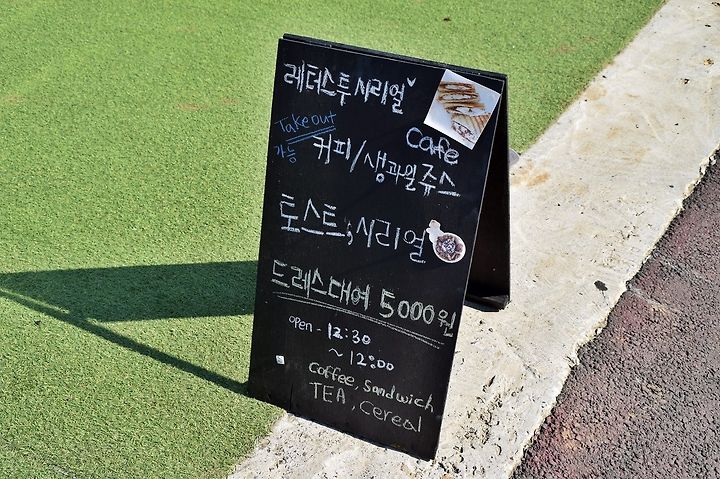 레터스투 시리얼
Cafe
Takeout
가능
커피/생과일쥬스
토스트, 시리얼
드레스대여 5000원
open - 12:30
~ 12:00
Coffee, Sandwich
TEA, Cereal